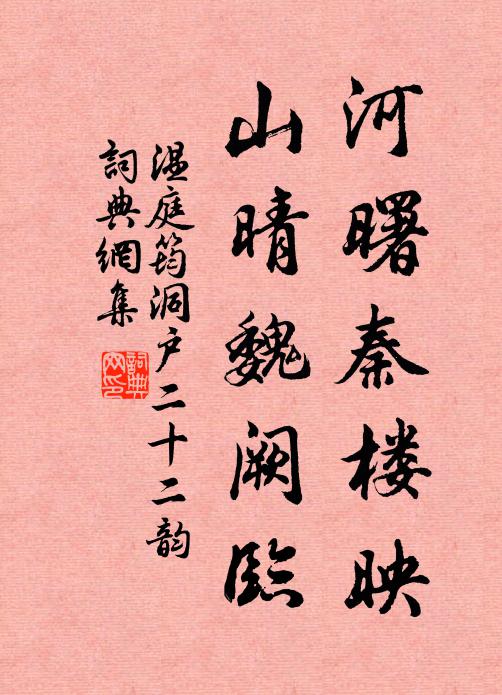 河曙秦楼映
山晴魏阙臨
温庭筠洞户二十二韵
詞典網集
詞典網印